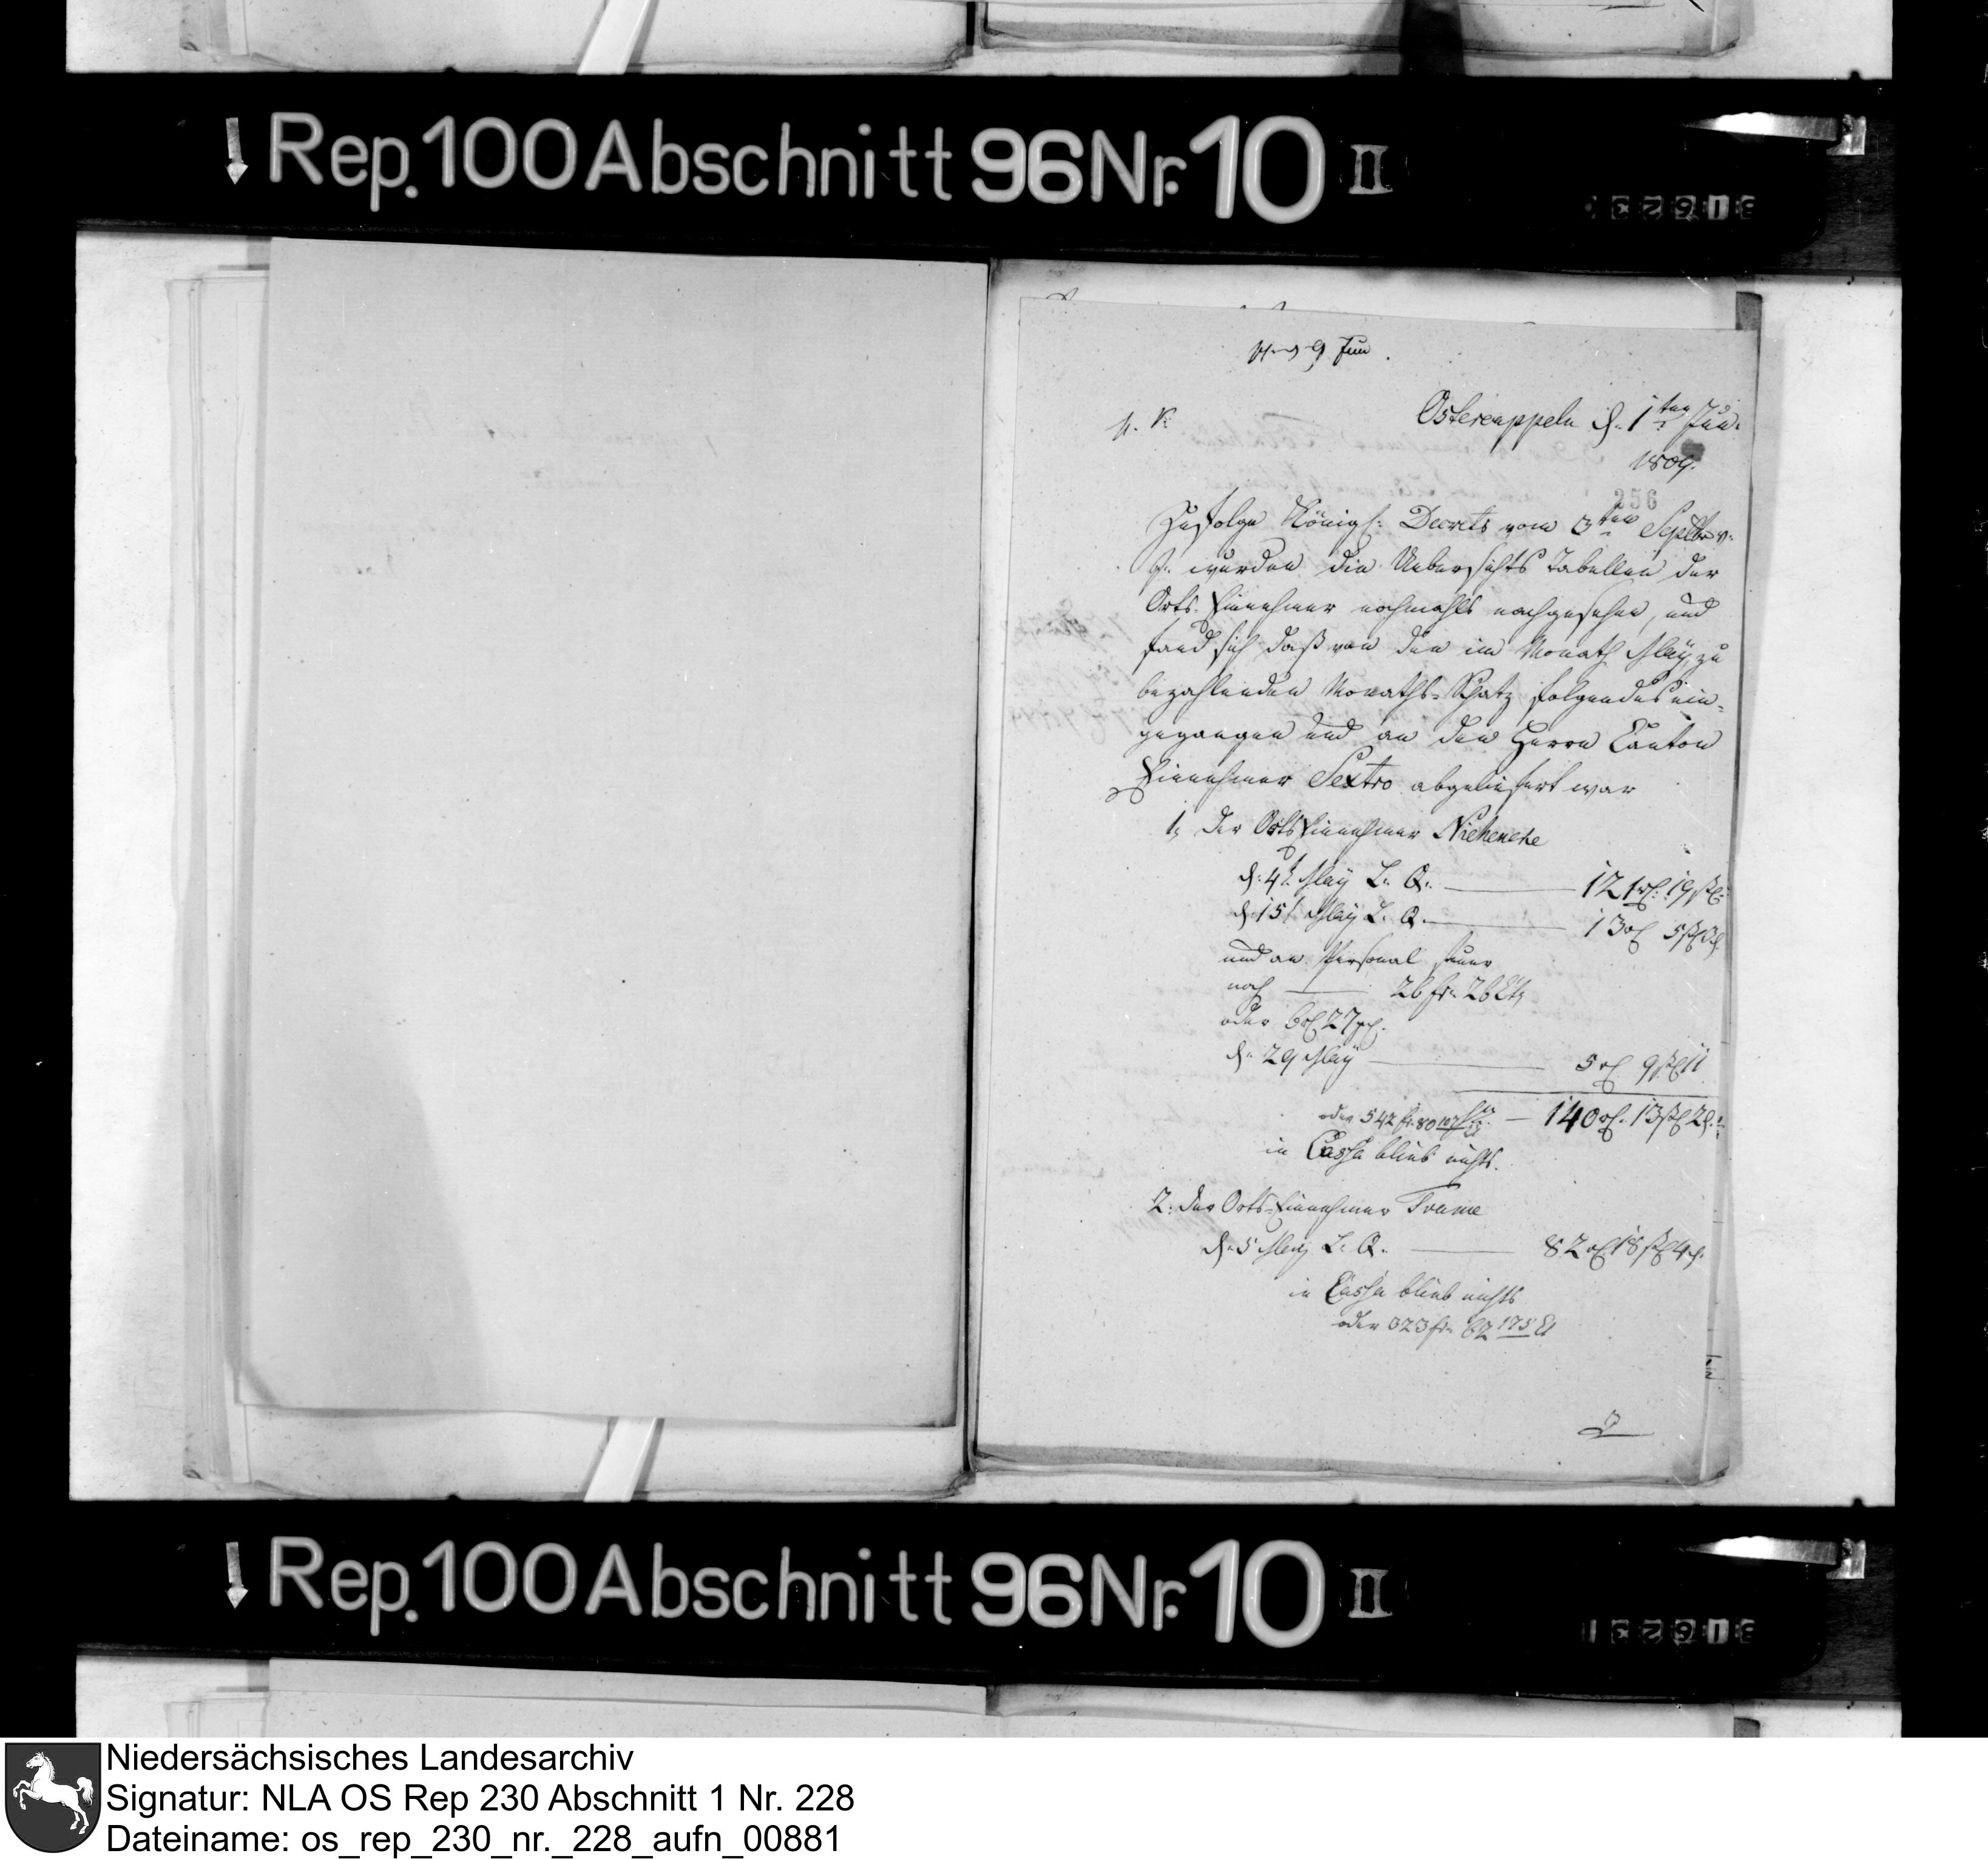 Rep. 100 Abschnitt 96 Nr. 10 II
9 Jun.
Ostercappeln d. 1ten Jun.
1809.
256
Zufolge Königl: Decrets vom 3ten Septbr v.
J. wurden die Uebersichts Tabellen der
Orts-Einnehmer nochmahls nachgesehen, und
fand sich daß von den im Monath May zu
bezahlenden Monaths-Schatz folgendes ein-
gegangen und an den Herrn Canton
Einnehmer Sextro abgeliefert war
1, der Orts Einnehmer Niehencke
d. 4t May L. Q. 121 rl. 19 ßl.
d. 15t May L. Q. 13 rl 5 ßl
und an Personal steuer
noch 26 fr. 26 Ct
oder 6 rl 27
d. 29 May 5 rl 9 ßl 11
oder 542 fr. 80 — 140 rl. 13 ßl 2 d.
in Cassa blieb nichts.
2. der Orts-Einnehmer Frame
d. 5 May L. Q. 82 rl 18 ßl 4 d.
in Cassa blieb nichts
oder 323 fr. 62
Rep. 100 Abschnitt 96 Nr. 10 II
Niedersächsisches Landesarchiv
Signatur: NLA OS Rep 230 Abschnitt 1 Nr. 228
Dateiname: os_rep_230_nr._228_aufn_00881